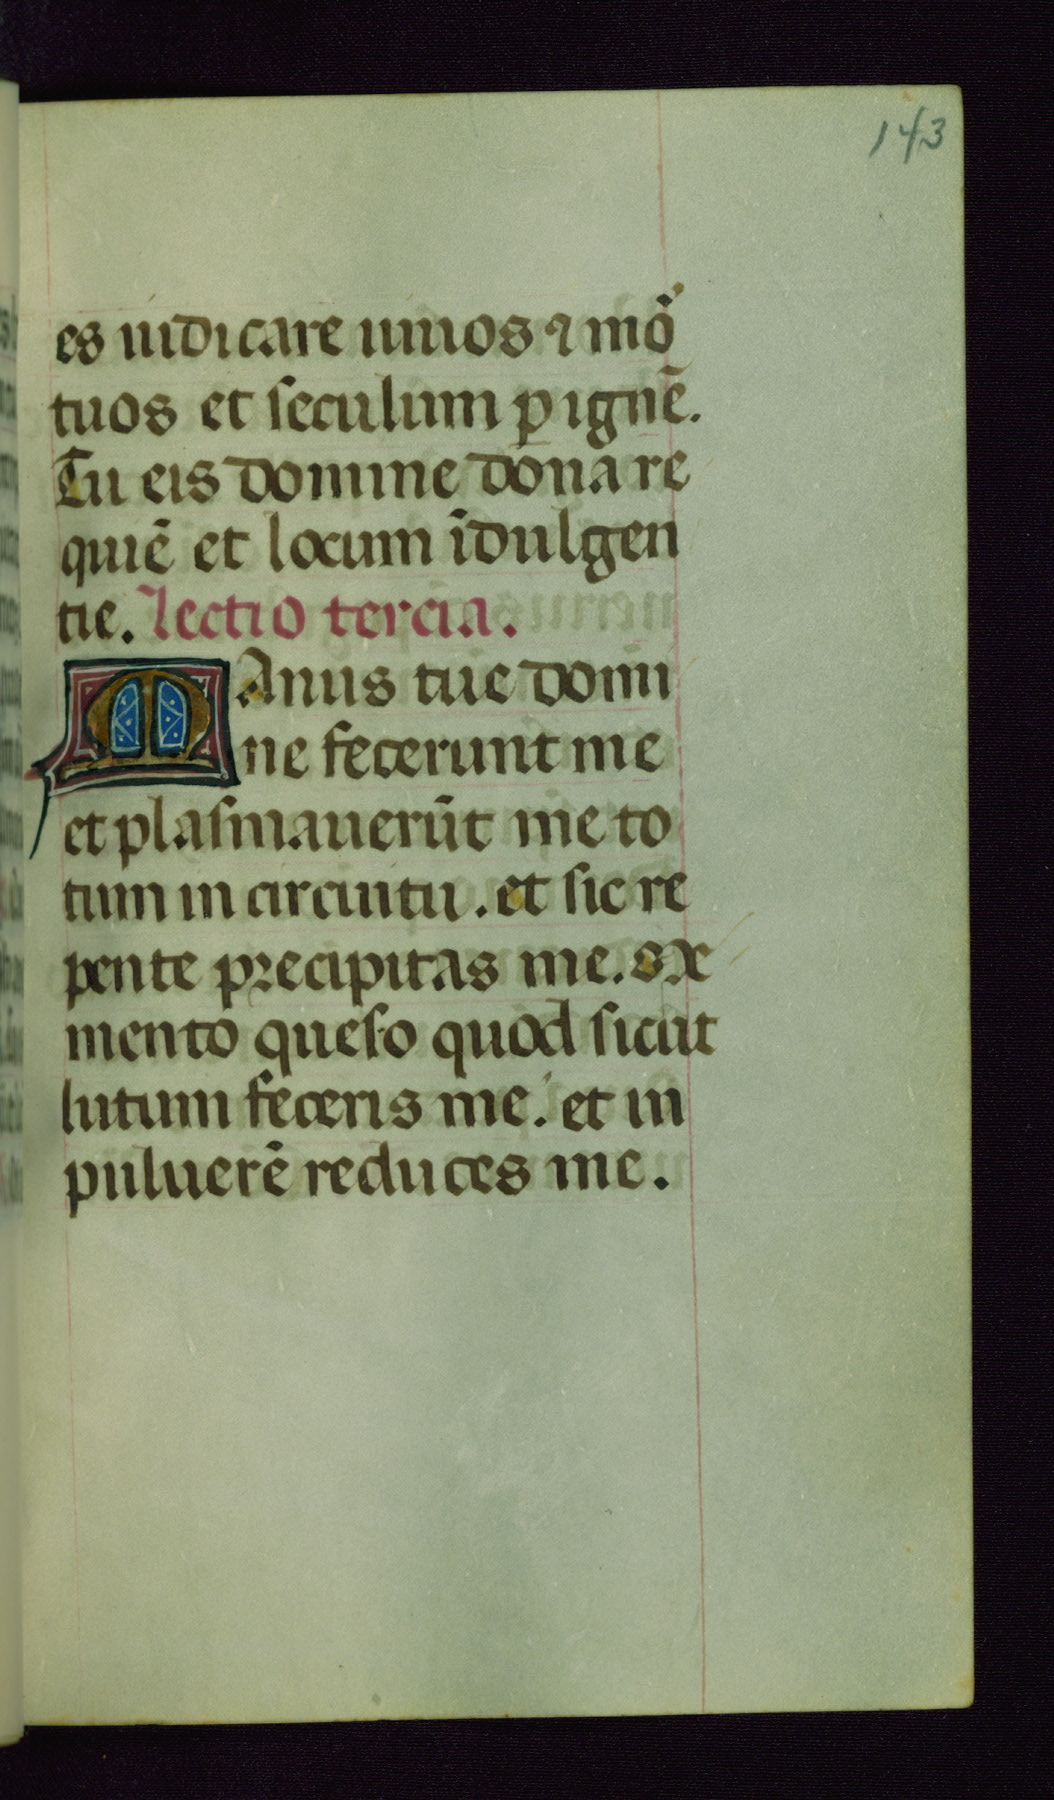 143
es iudicare uiuos ⁊ mõ
tuos et seculum ꝑ ignẽ.
Tu eis domine dona re
quiẽ et locum ĩdulgen
tie. lectio tercia.
Manus tue domi
ne fecerunt me
et plasmauerũt me to
tum in circuitu. et sic re
pente precipitas me. Me
mento queso quod sicut
lutum feceris me. et in
puluerẽ reduces me.